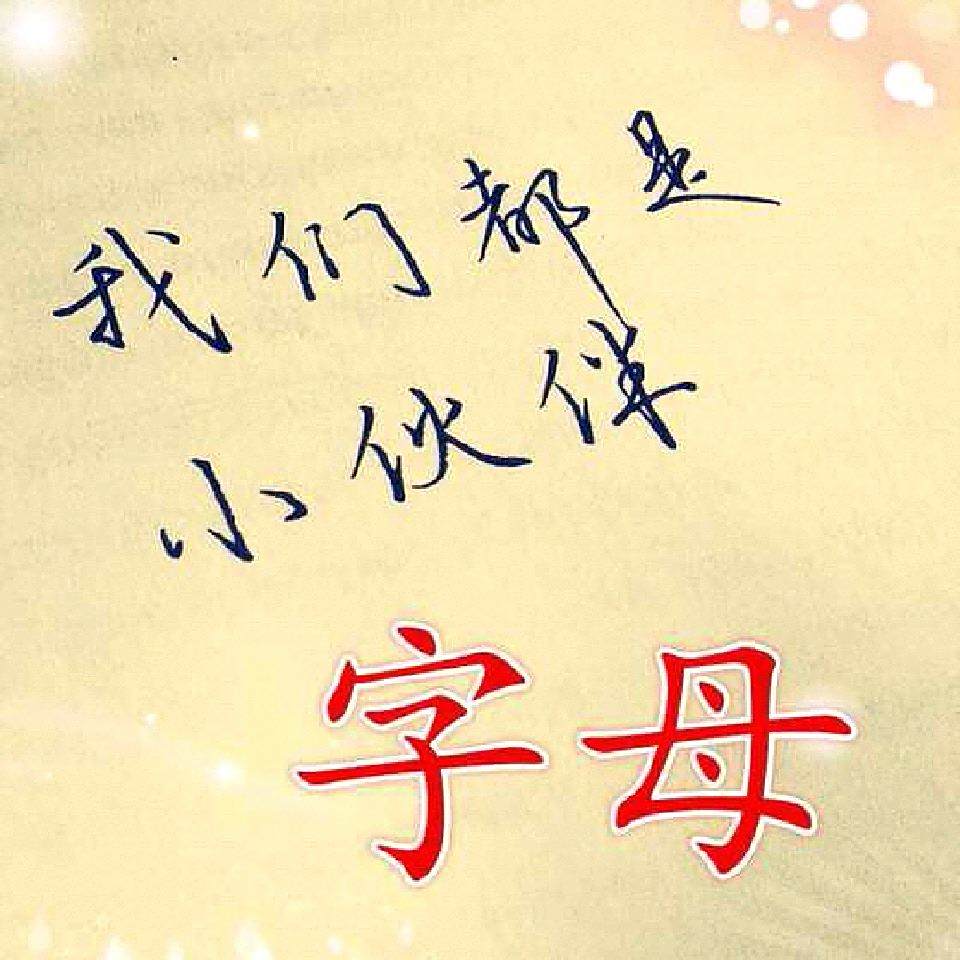 我们都是
小伙伴
字母